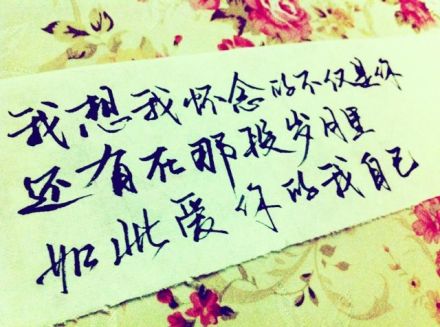 我想我怀念的不仅是你
还有在那段岁月里
如此爱你的我自己